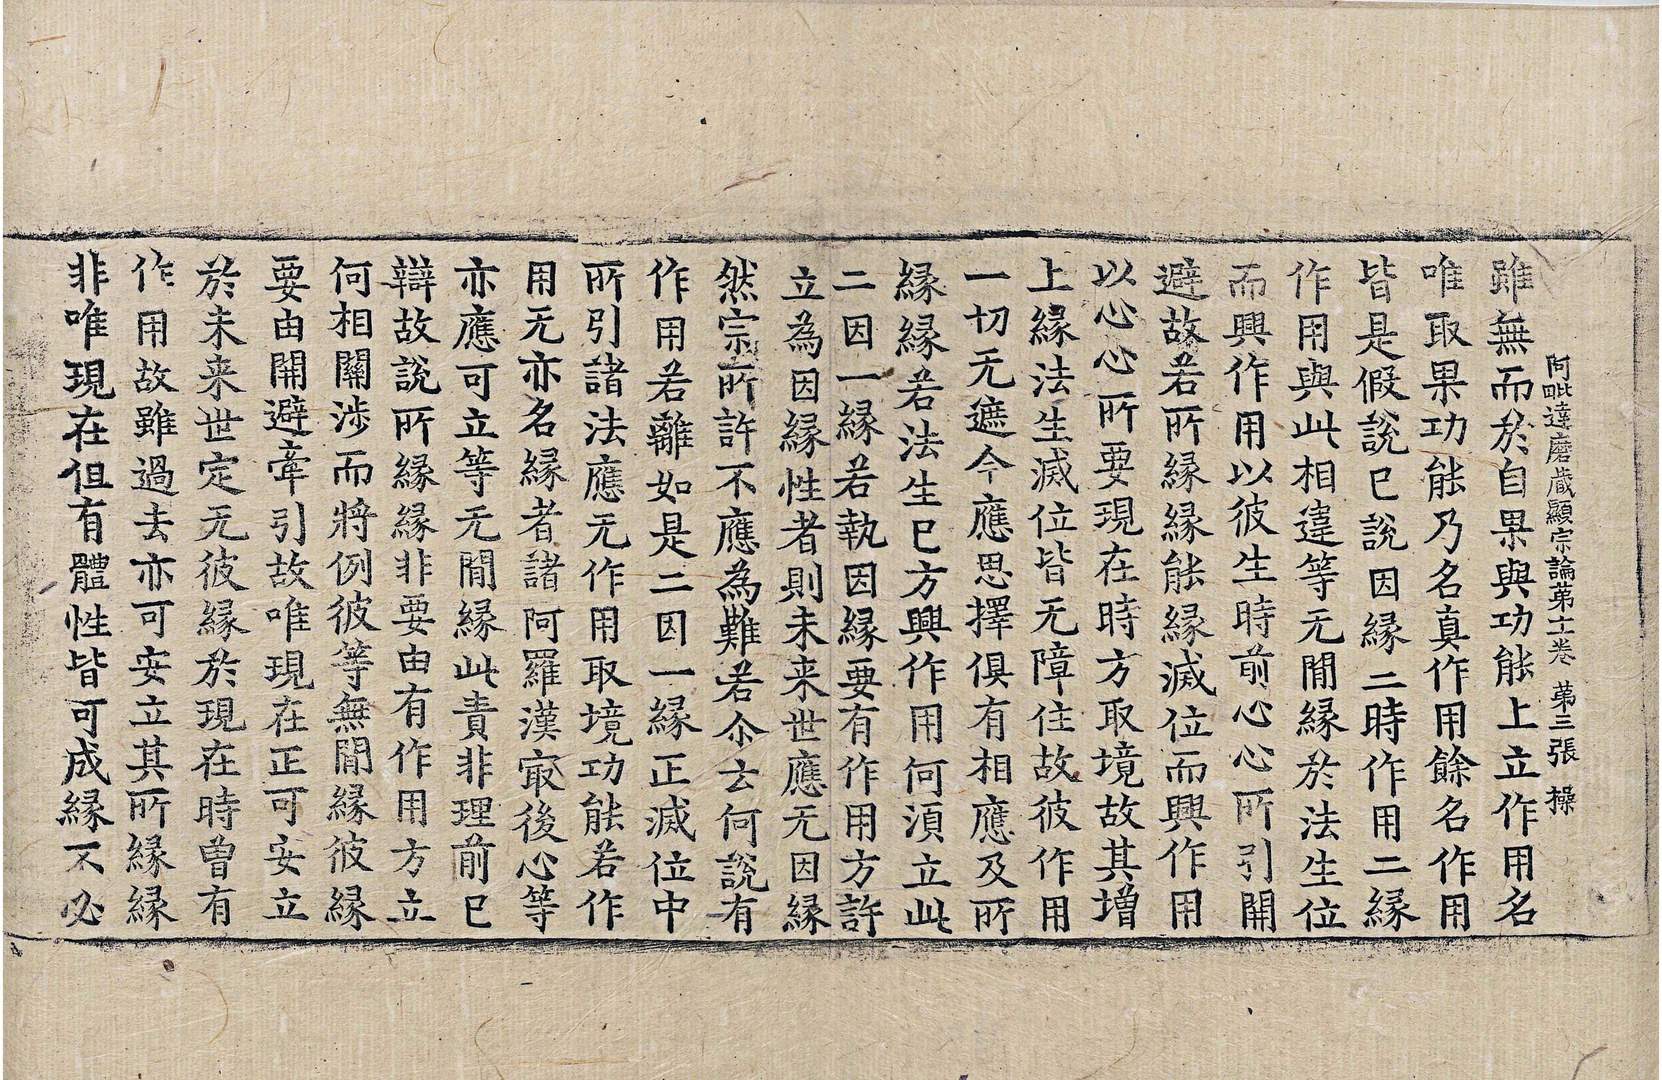 阿毗達磨藏顯宗論第十卷 第三張 操
雖無而於自果與功能上立作用名
唯取果功能乃名真作用餘名作用
皆是假說已說因緣二時作用二緣
作用與此相違等无間緣於法生位
而興作用以彼生時前心心所引開
避故若所緣緣能緣滅位而興作用
以心心所要現在時方取境故其增
上緣法生滅位皆无障住故彼作用
一切无遮今應思擇俱有相應及所
緣緣若法生已方興作用何湏立此
二因一緣若執因緣要有作用方許
立為因緣性者則未来世應无因緣
然宗所許不應為難若尒云何說有
作用若離如是二因一緣正滅位中
所引諸法應无作用取境功能若作
用无亦名緣者諸阿羅漢㝡後心等
亦應可立等无間緣此責非理前已
辯故說所緣緣非要由有作用方立
何相關涉而將例彼等無間緣彼緣
要由開避牽引故唯現在正可安立
於未来世定无彼緣於現在時曾有
作用故雖過去亦可安立其所緣緣
非唯現在但有體性皆可成緣不必